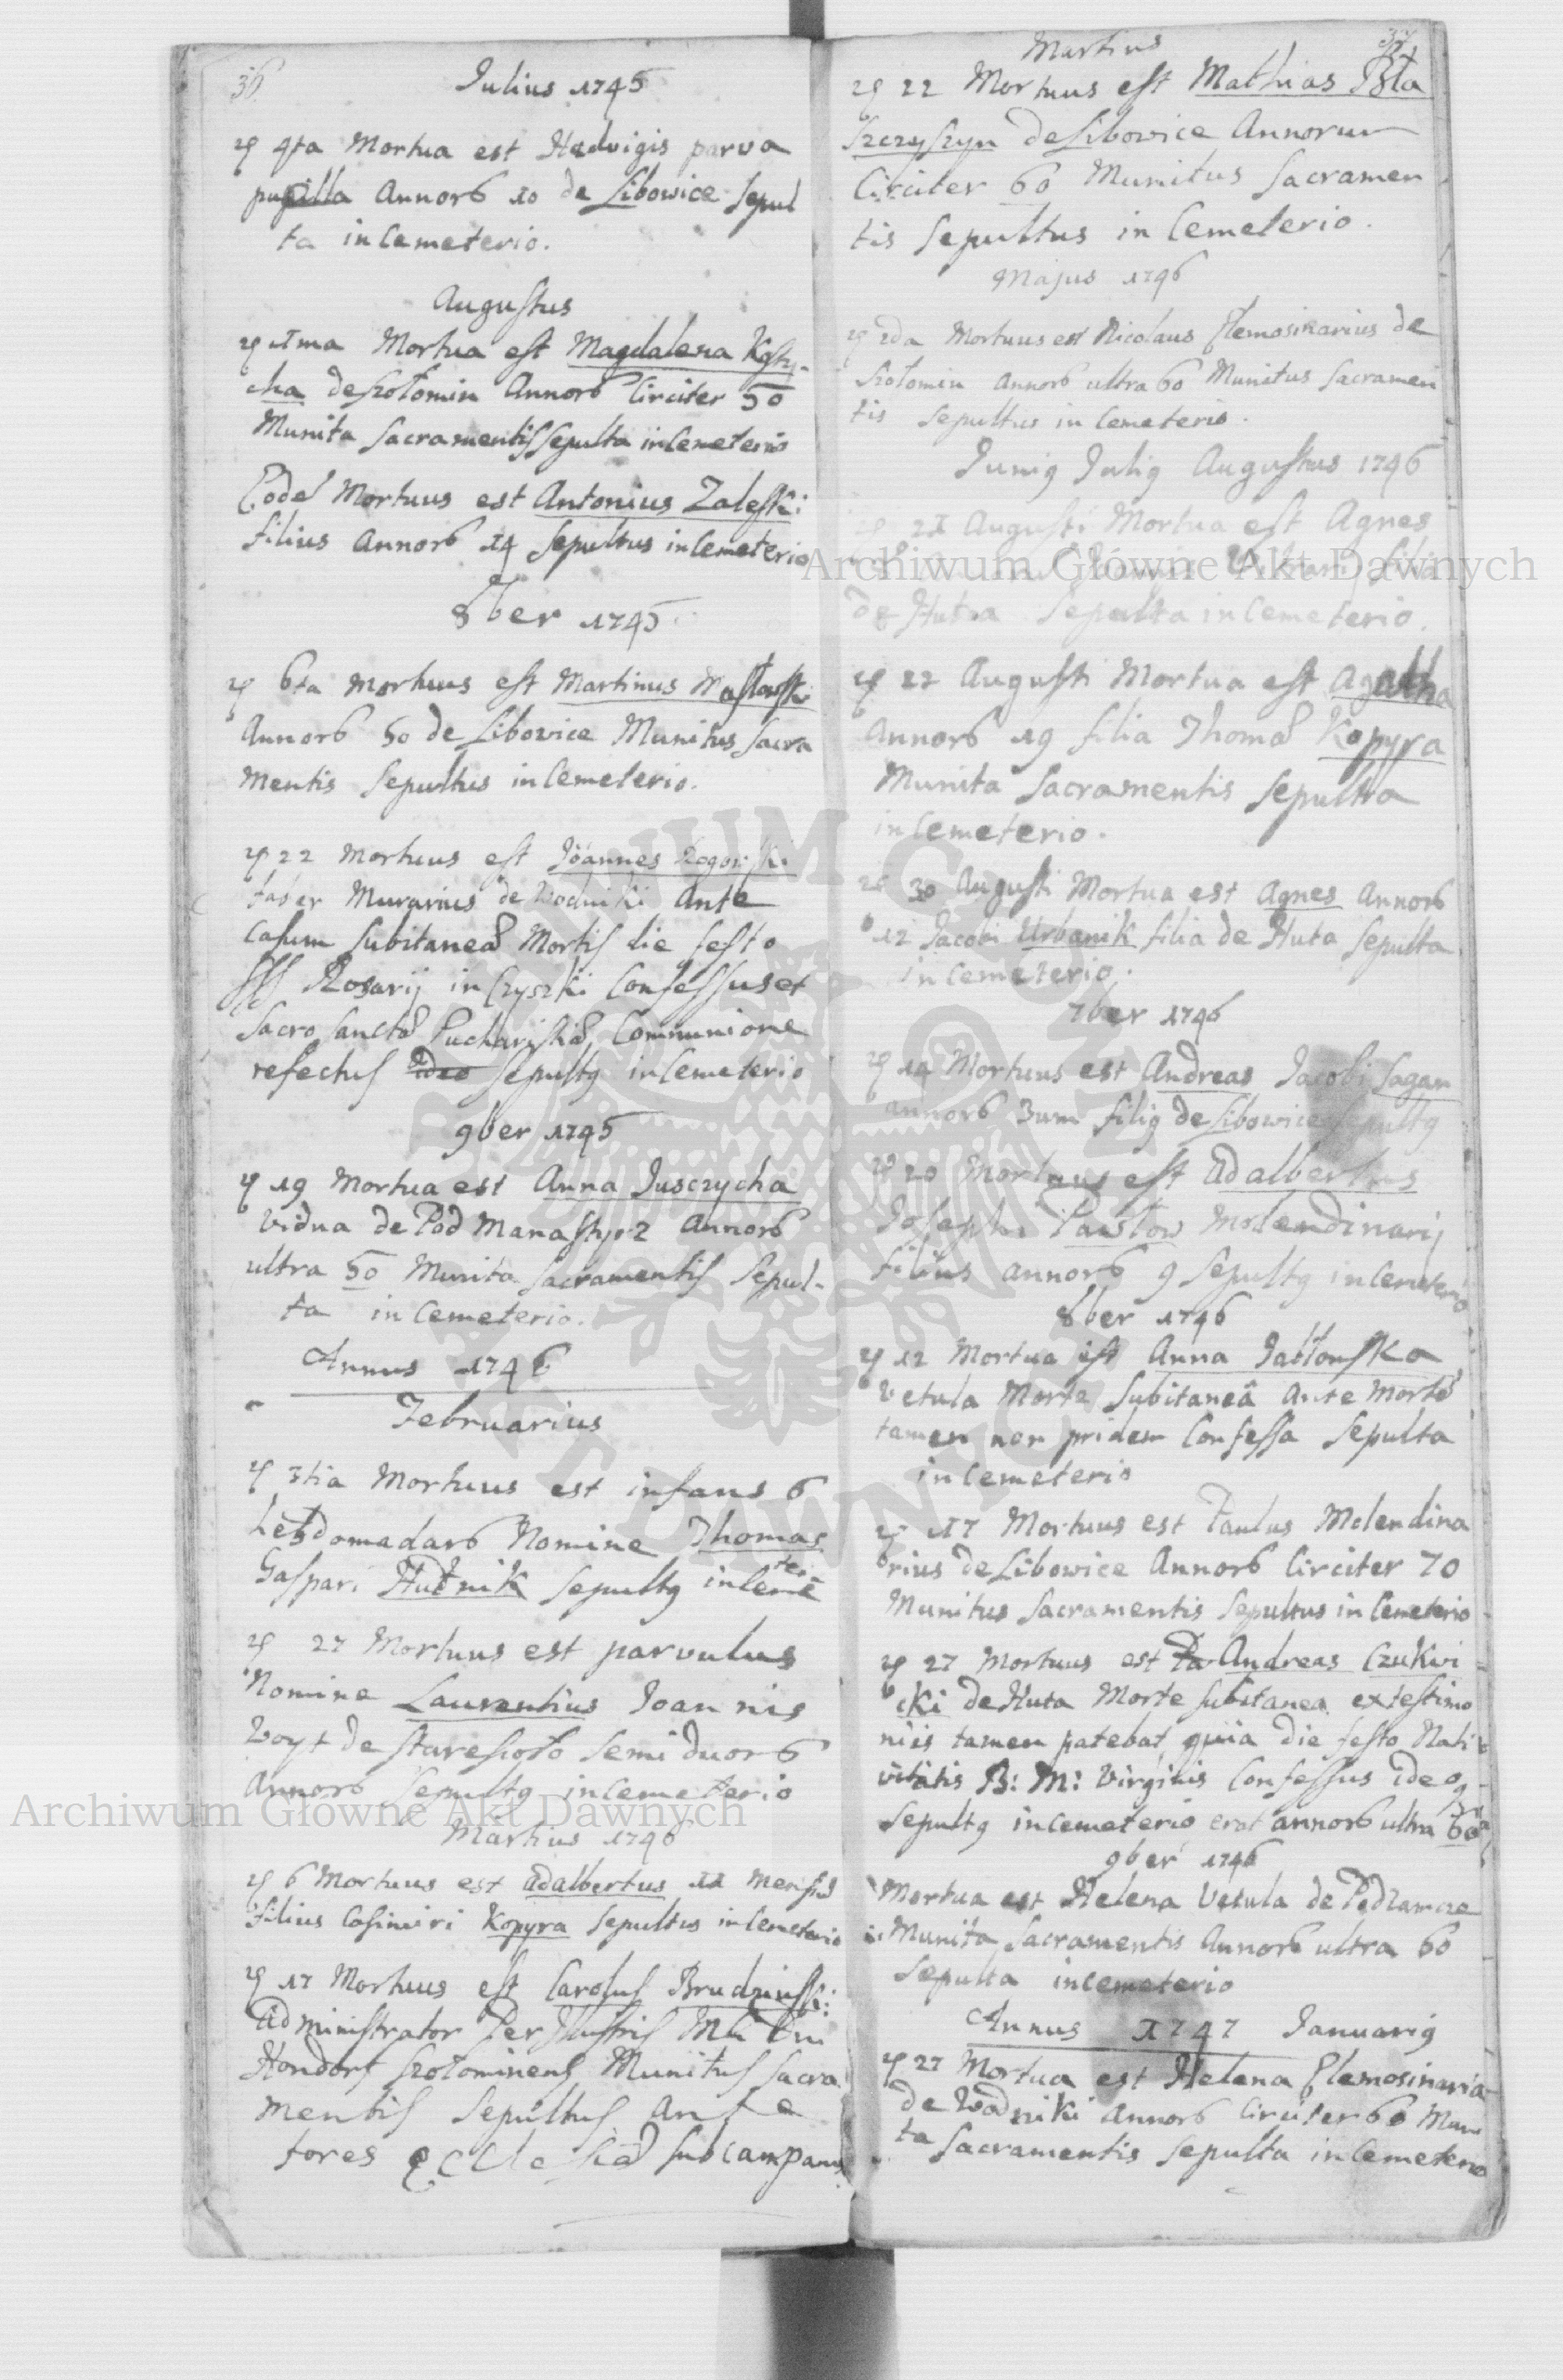 36
Julius 1745
4ta Mortua est Hedvigis parva
pupilla Annorb 10 de Libowice Sepul
ta in Cemeterio.
Augustus
1ma Mortua est Magdalena
cha de Szołomin Annorb Circiter 50
Munita Sacramentis Sepulta in Cemeterio
Eode Mortuus est Antonius Zaleski
filius Annorb 14 Sepultus in Cemeterio
8ber 1745
6ta Mortuus est Martinus
Annorb 50 de Libowice Munitus Sacra
mentis Sepultus in Cemeterio.
22 Mortuus est Joannes Rogowski
faber Murarius de Wodniki Ante
Casum Subitaneæ Mortis die festo
SSS Rosarij in Czyszki Confessus et
Sacro Sanctæ Eucharistiæ Communione
refectus ideo Sepultq in Cemeterio
9ber 1745
19 Mortua est Anna Juszczycha
Vidua de Pod Manastyrz Annorb
ultra 50 Munita Sacramentis Sepul-
ta in Cemeterio.
Annus 1746
Februarius
3tia Mortuus est infans 6
hebdomadarb Nomine Thomas
Gaspari Hutnik Sepultq in Ceme
teri
27 Mortuus est parvulus
Nomine Laurentius Joannis
Woyt de Staresioło Semi duorb
Annorb Sepultq in Cemeterio
Martius 1746
6 Mortuus est Adalbertus 11 Mensiu
Filius Casimiri Kopyra Sepultus in Cemeterio
17 Mortuus est Carolus Brudzinski
Administrator Per Illustris
Szołominens Munitus Sacra
mentis Sepultus Ante
fores Ecclesiæ sub Campana
Martius
37
22 Mortuus est Mathias
de Libowice Annorum
Circiter 60 Munitus Sacramen
tis Sepultus in Cemeterio.
Majus 1746
2da Mortuus est Nicolaus Elemosinarius de
Szołomin Annorb ultra 60 Munitus Sacramen
tis Sepultus in Cemeterio.
Juniq Juliq Augustus 1746
21 Augusti Mortua est Agnes
filia
de Huta Sepulta in Cemeterio.
22 Augusti Mortua est Agatha
Annorb 19 filia Thomæ Kopyra
Munita Sacramentis Sepulta
in Cemeterio.
30 Augusti Mortua est Agnes Annorb
12 Jacobi Urbanik filia de Huta Sepulta
in Cemeterio.
7ber 1746
14 Mortuus est Andreas Jacobi Sagan
annorb 3um filiq de Libowice Sepultq
20 Mortuus est Adalbertus
Josephi Pawłow Molendinarij
filius annorb 9 Sepultq in Cemeterio
8ber 1746
12 Mortua est Anna Jabłonska
Vetula Morte Subitaneâ Ante Morte
tamen non pridem Confessa Sepulta
in Cemeterio
17 Mortuus est Paulus Molendina
rius de Libowice Annorb Circiter 70
Munitus Sacramentis Sepultus in Cemeterio
27 Mortuus est Pa Andreas Czukwi
cki de Huta Morte Subitanea ex testimo
niis tamen patebat quia die festo Nati
vitatis B: M: Virginis Confessus ideo
Sepultq in Cemeterio erat annorb ultra 60
9ber 1746
Mortua est Helena Vetula de Podzamcze
Munita Sacramentis Annorb ultra 60
Sepulta in Cemeterio
Annus 1747 Januariq
27 Mortua est Helena Elemosinaria
de Wodniki Annorb Circiter 60 Muni
ta Sacramentis Sepulta in Cemeterio
Archiwum Główne Akt Dawnych
Archiwum Główne Akt Dawnych
ARCHIWUM GŁÓWNE
AKT DAWNYCH